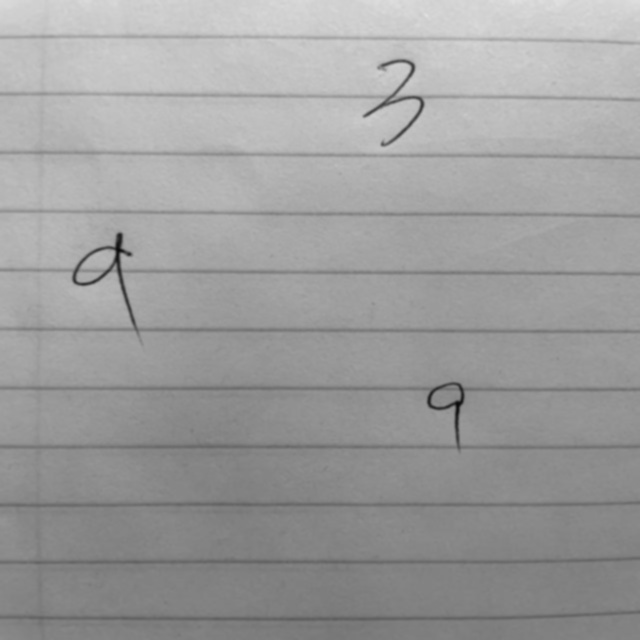 3
9
9